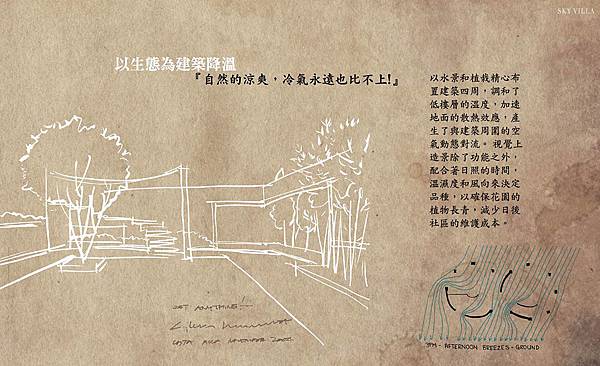 SKY VILLA
以生態為建築降溫
『自然的涼爽,冷氣永遠也比不上!』
以水景和植栽精心布
置建築四周,調和了
低樓層的溫度,加速
地面的散熱效應,產
生了與建築周圍的空
氣動態對流。視覺上
造景除了功能之外,
配合著日照的時間,
溫濕度和風向來決定
品種,以確保花園的
植物長青,減少日後
社區的維護成本。
3PM - AFTERNOON BREEZES - GROUND